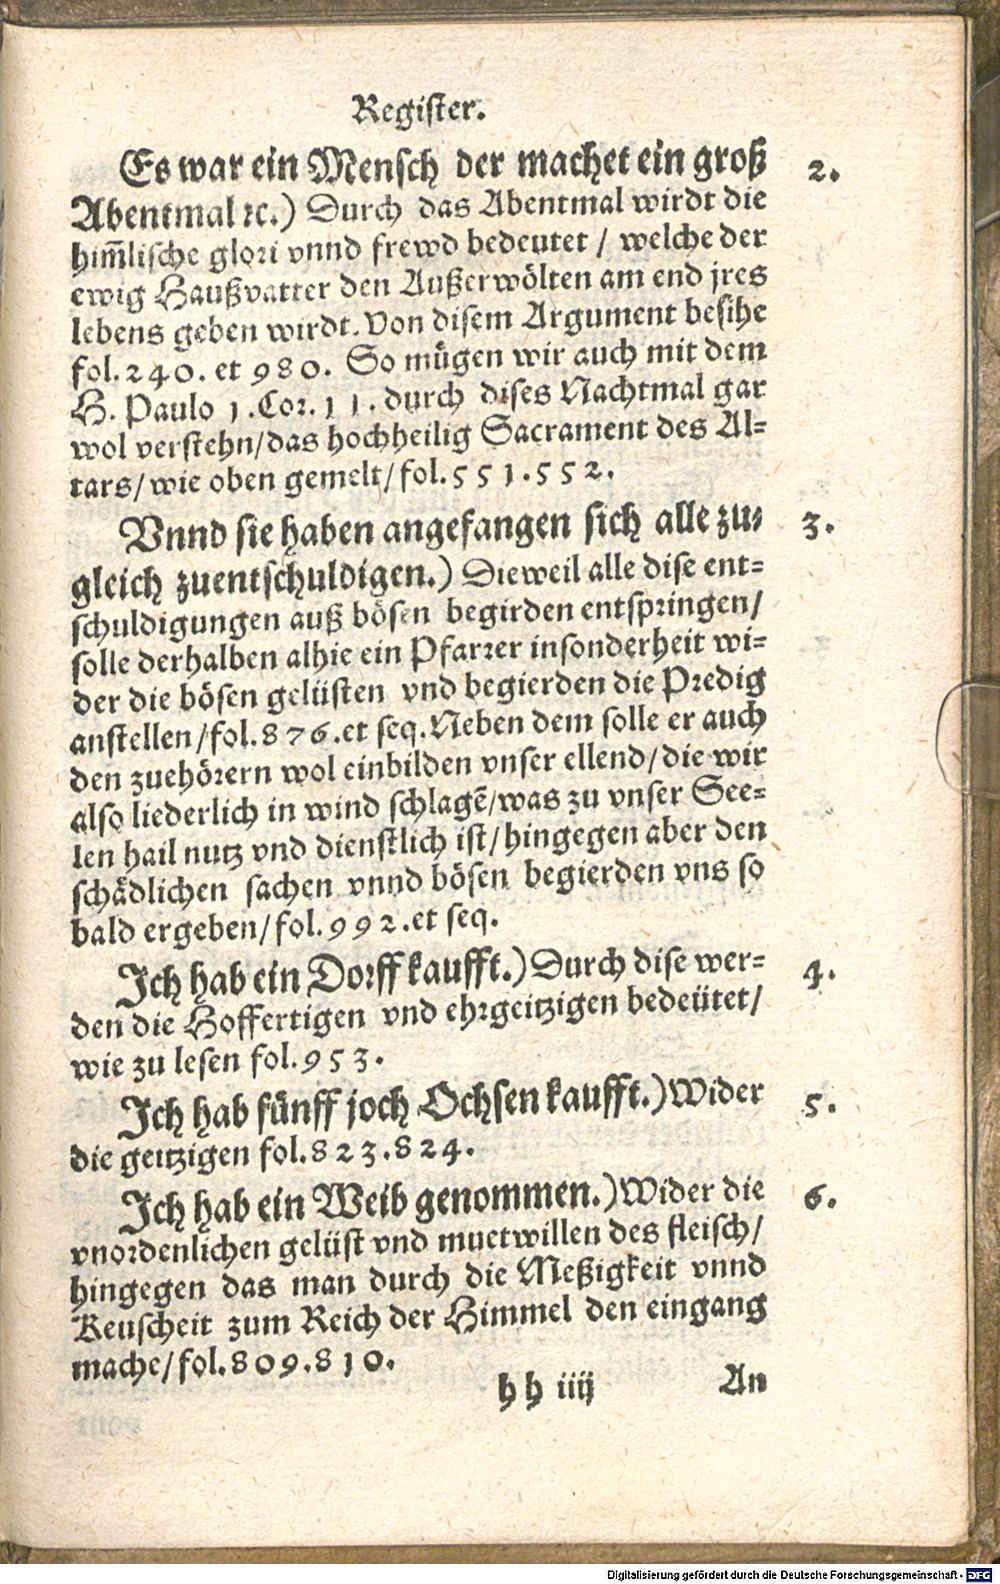 Register.
Es war ein Mensch der machet ein groß 2.
Abentmal ꝛc.) Durch das Abentmal wirdt die
him̃lische glori vnnd frewd bedeutet / welche der
ewig Haußvatter den Außerwölten am end jres
lebens geben wirdt. Von disem Argument besihe
fol. 240. et 980. So mügen wir auch mit dem
H. Paulo 1. Cor. 11. durch dises Nachtmal gar
wol verstehn/das hochheilig Sacrament des Al-
tars/wie oben gemelt/fol. 551. 552.
Vnnd sie haben angefangen sich alle zu- 3.
gleich zuentschuldigen.) Dieweil alle dise ent-
schuldigungen auß bösen begirden entspringen/
solle derhalben alhie ein Pfarrer insonderheit wi-
der die bösen gelüsten vnd begierden die Predig
anstellen/fol. 876. et seq. Neben dem solle er auch
den zuehörern wol einbilden vnser ellend/die wir
also liederlich in wind schlagẽ/was zu vnser See-
len hail nutz vnd dienstlich ist/hingegen aber den
schädlichen sachen vnnd bösen begierden vns so
bald ergeben/fol. 992. et seq.
Ich hab ein Dorff kaufft.) Durch dise wer- 4.
den die Hoffertigen vnd ehrgeitzigen bedeütet/
wie zu lesen fol. 953.
Ich hab fünff joch Ochsen kaufft.) Wider 5.
die geitzigen fol. 823. 824.
Ich hab ein Weib genommen.) Wider die 6.
vnordenlichen gelüst vnd muetwillen des fleisch/
hingegen das man durch die Meßigkeit vnnd
Keuscheit zum Reich der Himmel den eingang
mache/fol. 809. 810.
hh iiij An
Digitalisierung gefördert durch die Deutsche Forschungsgemeinschaft - DFG